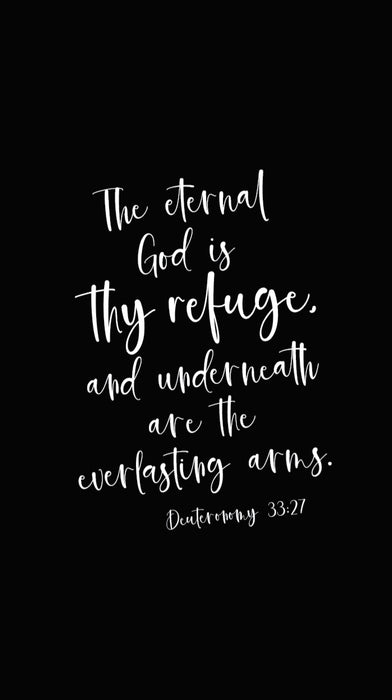 The eternal
God is
thy refuge,
and underneath
are the
everlasting arms.
Deuteronomy 33:27